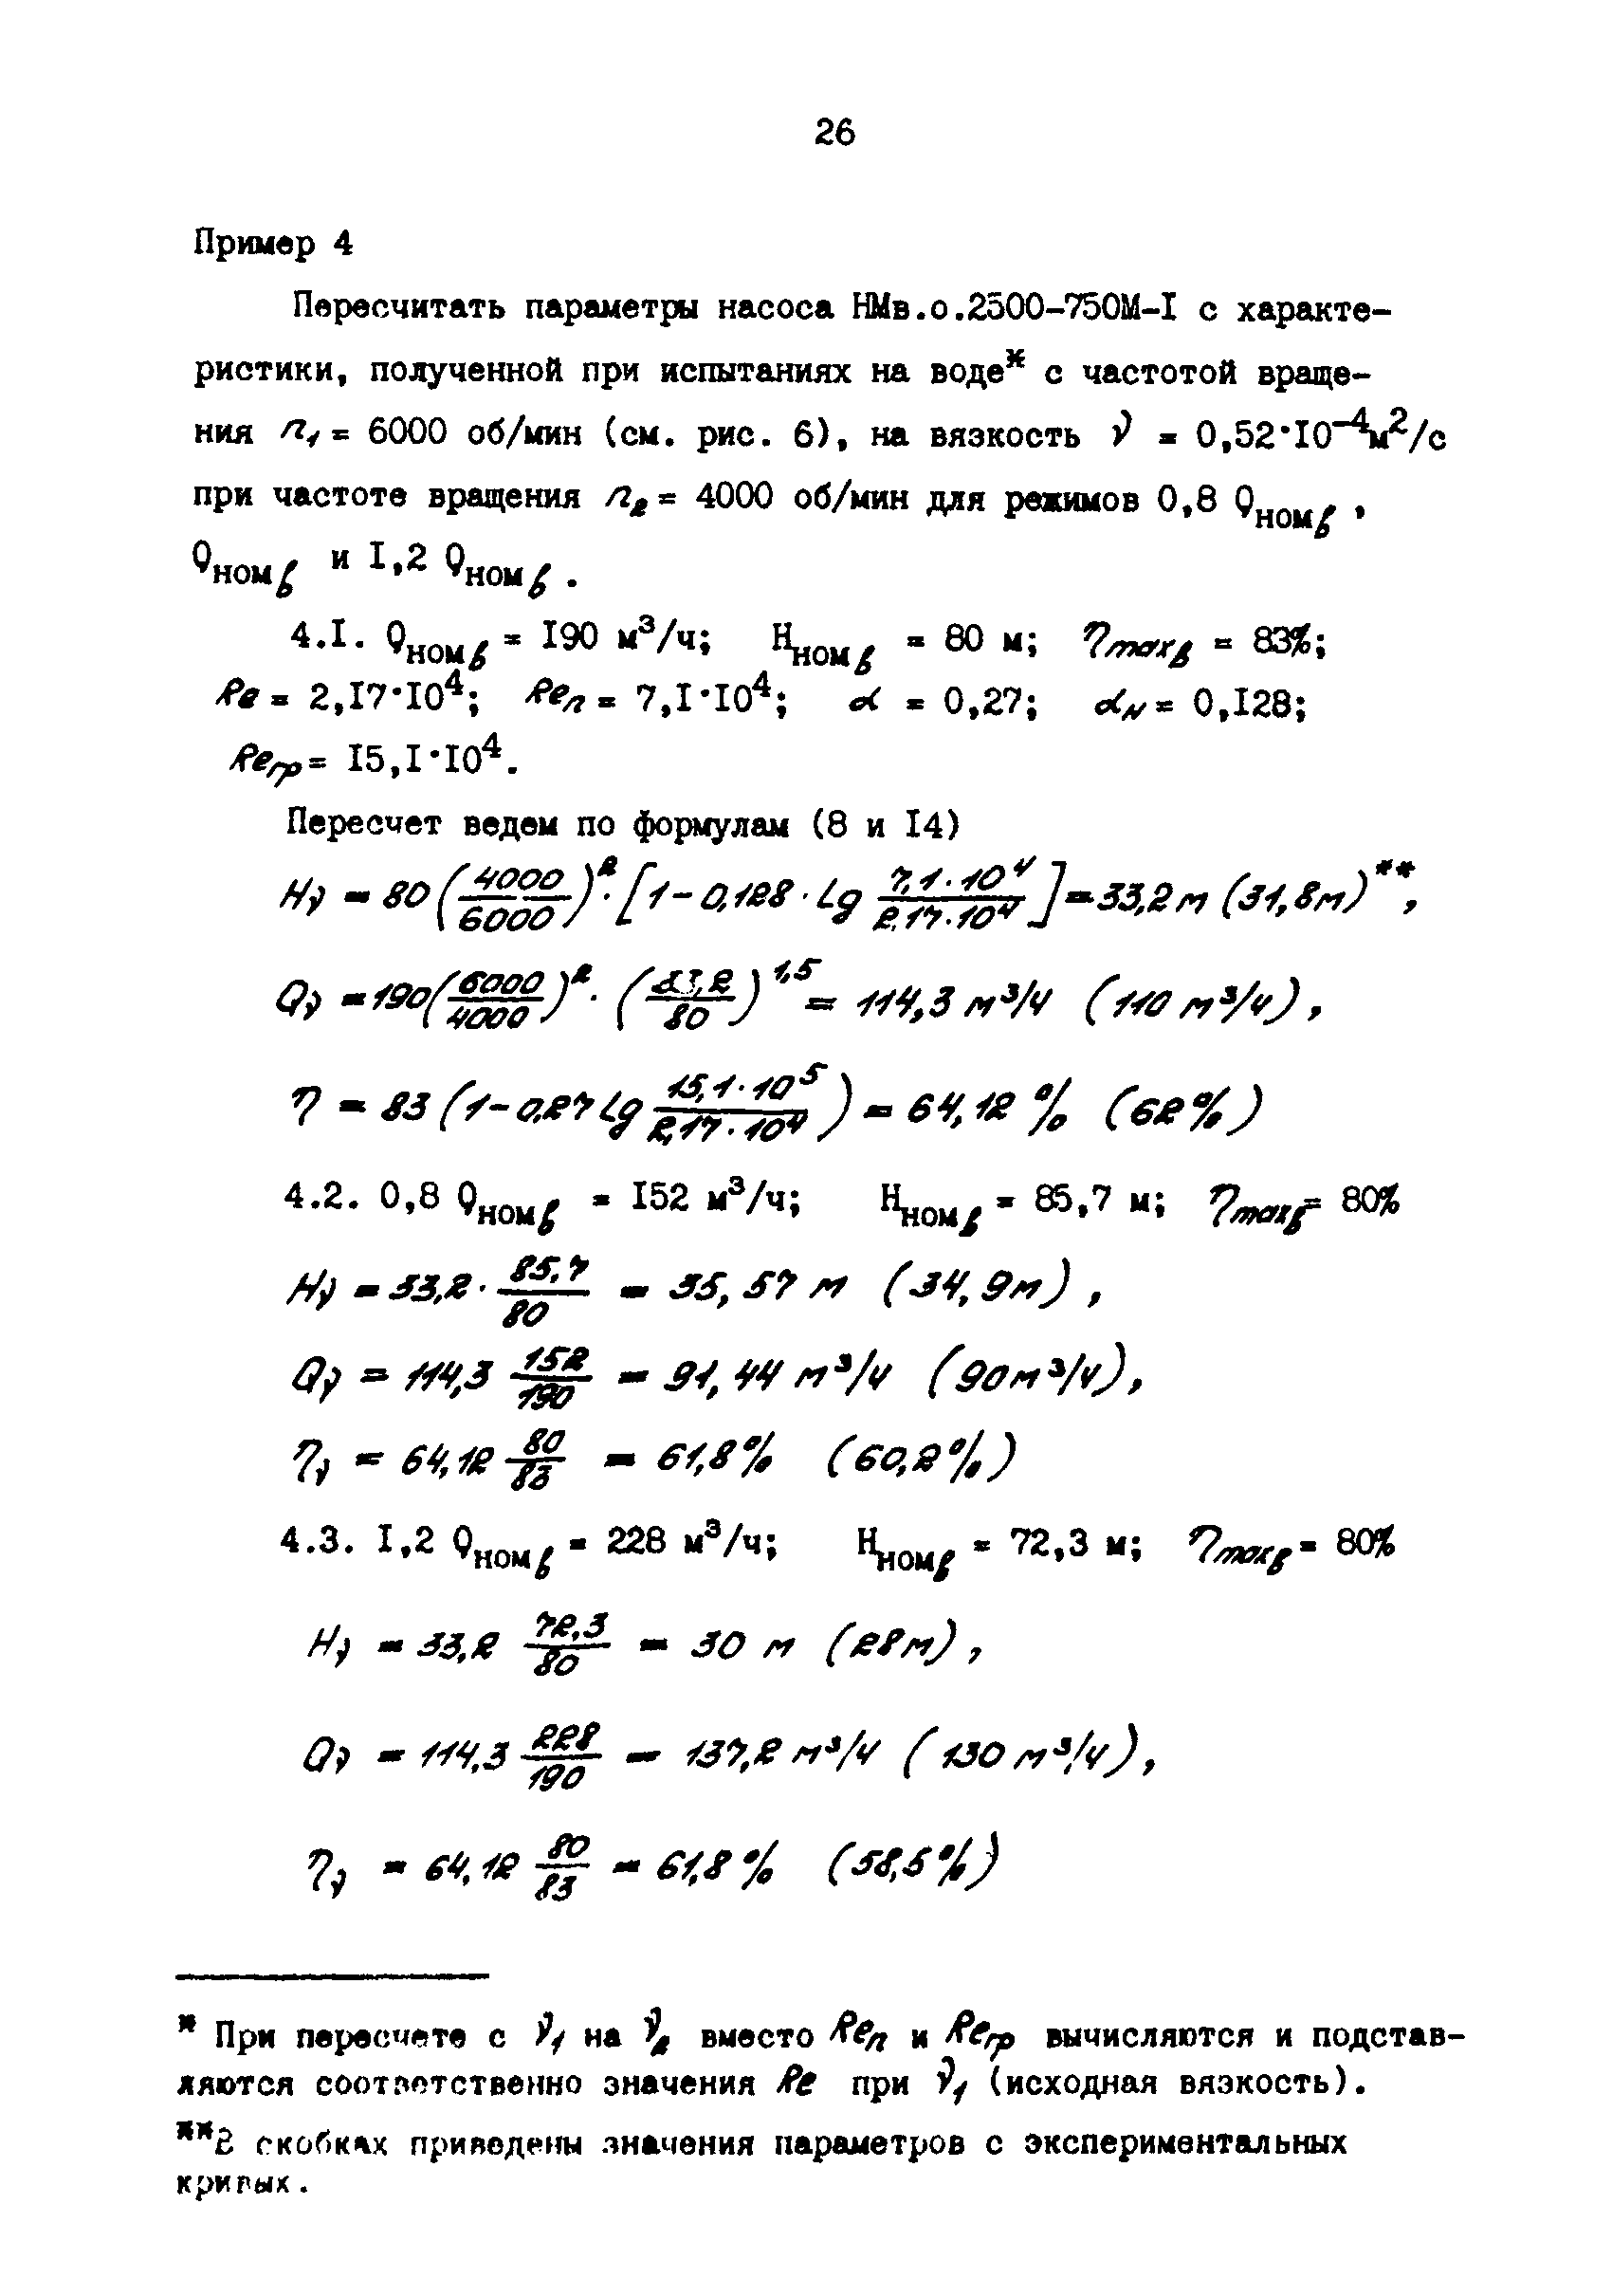 26
Пример 4
Пересчитать параметры насоса НМв.о.2500-750М-I с характе-
ристики, полученной при испытаниях на воде* с частотой враще-
ния n₁ = 6000 об/мин (см. рис. 6), на вязкость ν = 0,52·10⁻⁴м²/с
при частоте вращения n₂ = 4000 об/мин для режимов 0,8 Qномв,
Qномв и I,2 Qномв.
4.I. Qномв = I90 м³/ч; Hномв = 80 м; ηmaxв = 83%;
Re = 2,I7·I0⁴; Reп = 7,I·I0⁴; α = 0,27; αн = 0,I28;
Reгр = I5,I·I0⁴.
Пересчет ведем по формулам (8 и I4)
Hν = 80(4000/6000)²·[1-0,128·Lg 7,1·10⁴/2,17·10⁴] = 33,2 м (31,8м)**,
Qν = 190(6000/4000)²·(33,2/80)^1,5 = 114,3 м³/ч (110 м³/ч),
η = 83(1-0,27 Lg 15,1·10⁵/2,17·10⁴) = 64,12 % (62%)
4.2. 0,8 Qномв = I52 м³/ч; Hномв = 85,7 м; ηmaxв = 80%
Hν = 33,2 · 85,7/80 = 35,57 м (34,9м),
Qν = 114,3 152/190 = 91,44 м³/ч (90м³/ч),
ην = 64,12 80/83 = 61,8% (60,2%)
4.3. I,2 Qномв = 228 м³/ч; Hномв = 72,3 м; ηmaxв = 80%
Hν = 33,2 72,3/80 = 30 м (28м),
Qν = 114,3 228/190 = 137,2 м³/ч (130 м³/ч),
ην = 64,12 80/83 = 61,8 % (58,5%)
* При пересчете с ν₁ на ν₂ вместо Reп и Reгр вычисляются и подстав-
ляются соответственно значения Re при ν₁ (исходная вязкость).
**В скобках приведены значения параметров с экспериментальных
кривых.